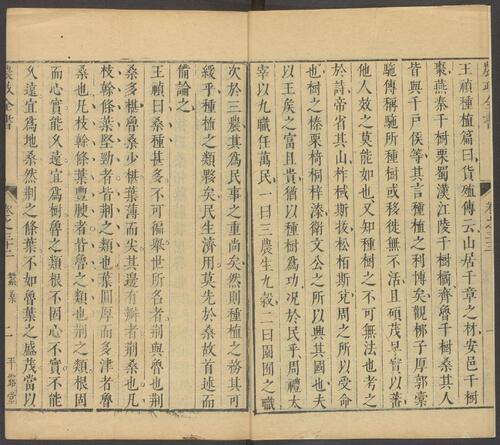 王禎種植篇曰貨殖傳云山居千章之材安邑千樹
棗燕秦千樹栗蜀漢江陵千樹橘齊魯千樹桑其人
皆與千戶侯等其言種植之利博矣觀栁子厚郭橐
駞傳稱駞所種樹或移徙無不活且碩茂早實以蕃
他人效之莫能如也又知種樹之不可無法也考之
於詩帝省其山柞棫斯拔松栢斯兌周之所以受命
也樹之榛栗椅桐梓漆衛文公之所以興其國也夫
以王矦之富且貴猶以種樹為功况於民乎周禮太
宰以九職任萬民一曰三農生九糓二曰園圃之職
次於三農其為民事之重尚矣然則種植之務其可
緩乎種植之類夥矣民生濟用莫先於桑故首述而
備論之
王禎曰桑種甚多不可徧舉世所名者荆與魯也荆
桑多椹魯桑少椹葉薄而尖其邊有瓣者荆桑也凡
枝幹條葉堅勁者皆荆之類也葉圓厚而多津者魯
桑也凡枝幹條葉豐腴者皆魯之類也荆之類根固
而心實能久遠宜為樹魯之類根不固心不實不能
久遠宜為地桑然荆之條葉不如魯葉之盛茂當以
農政全書 卷之三十二 蠶桑 二 平露堂